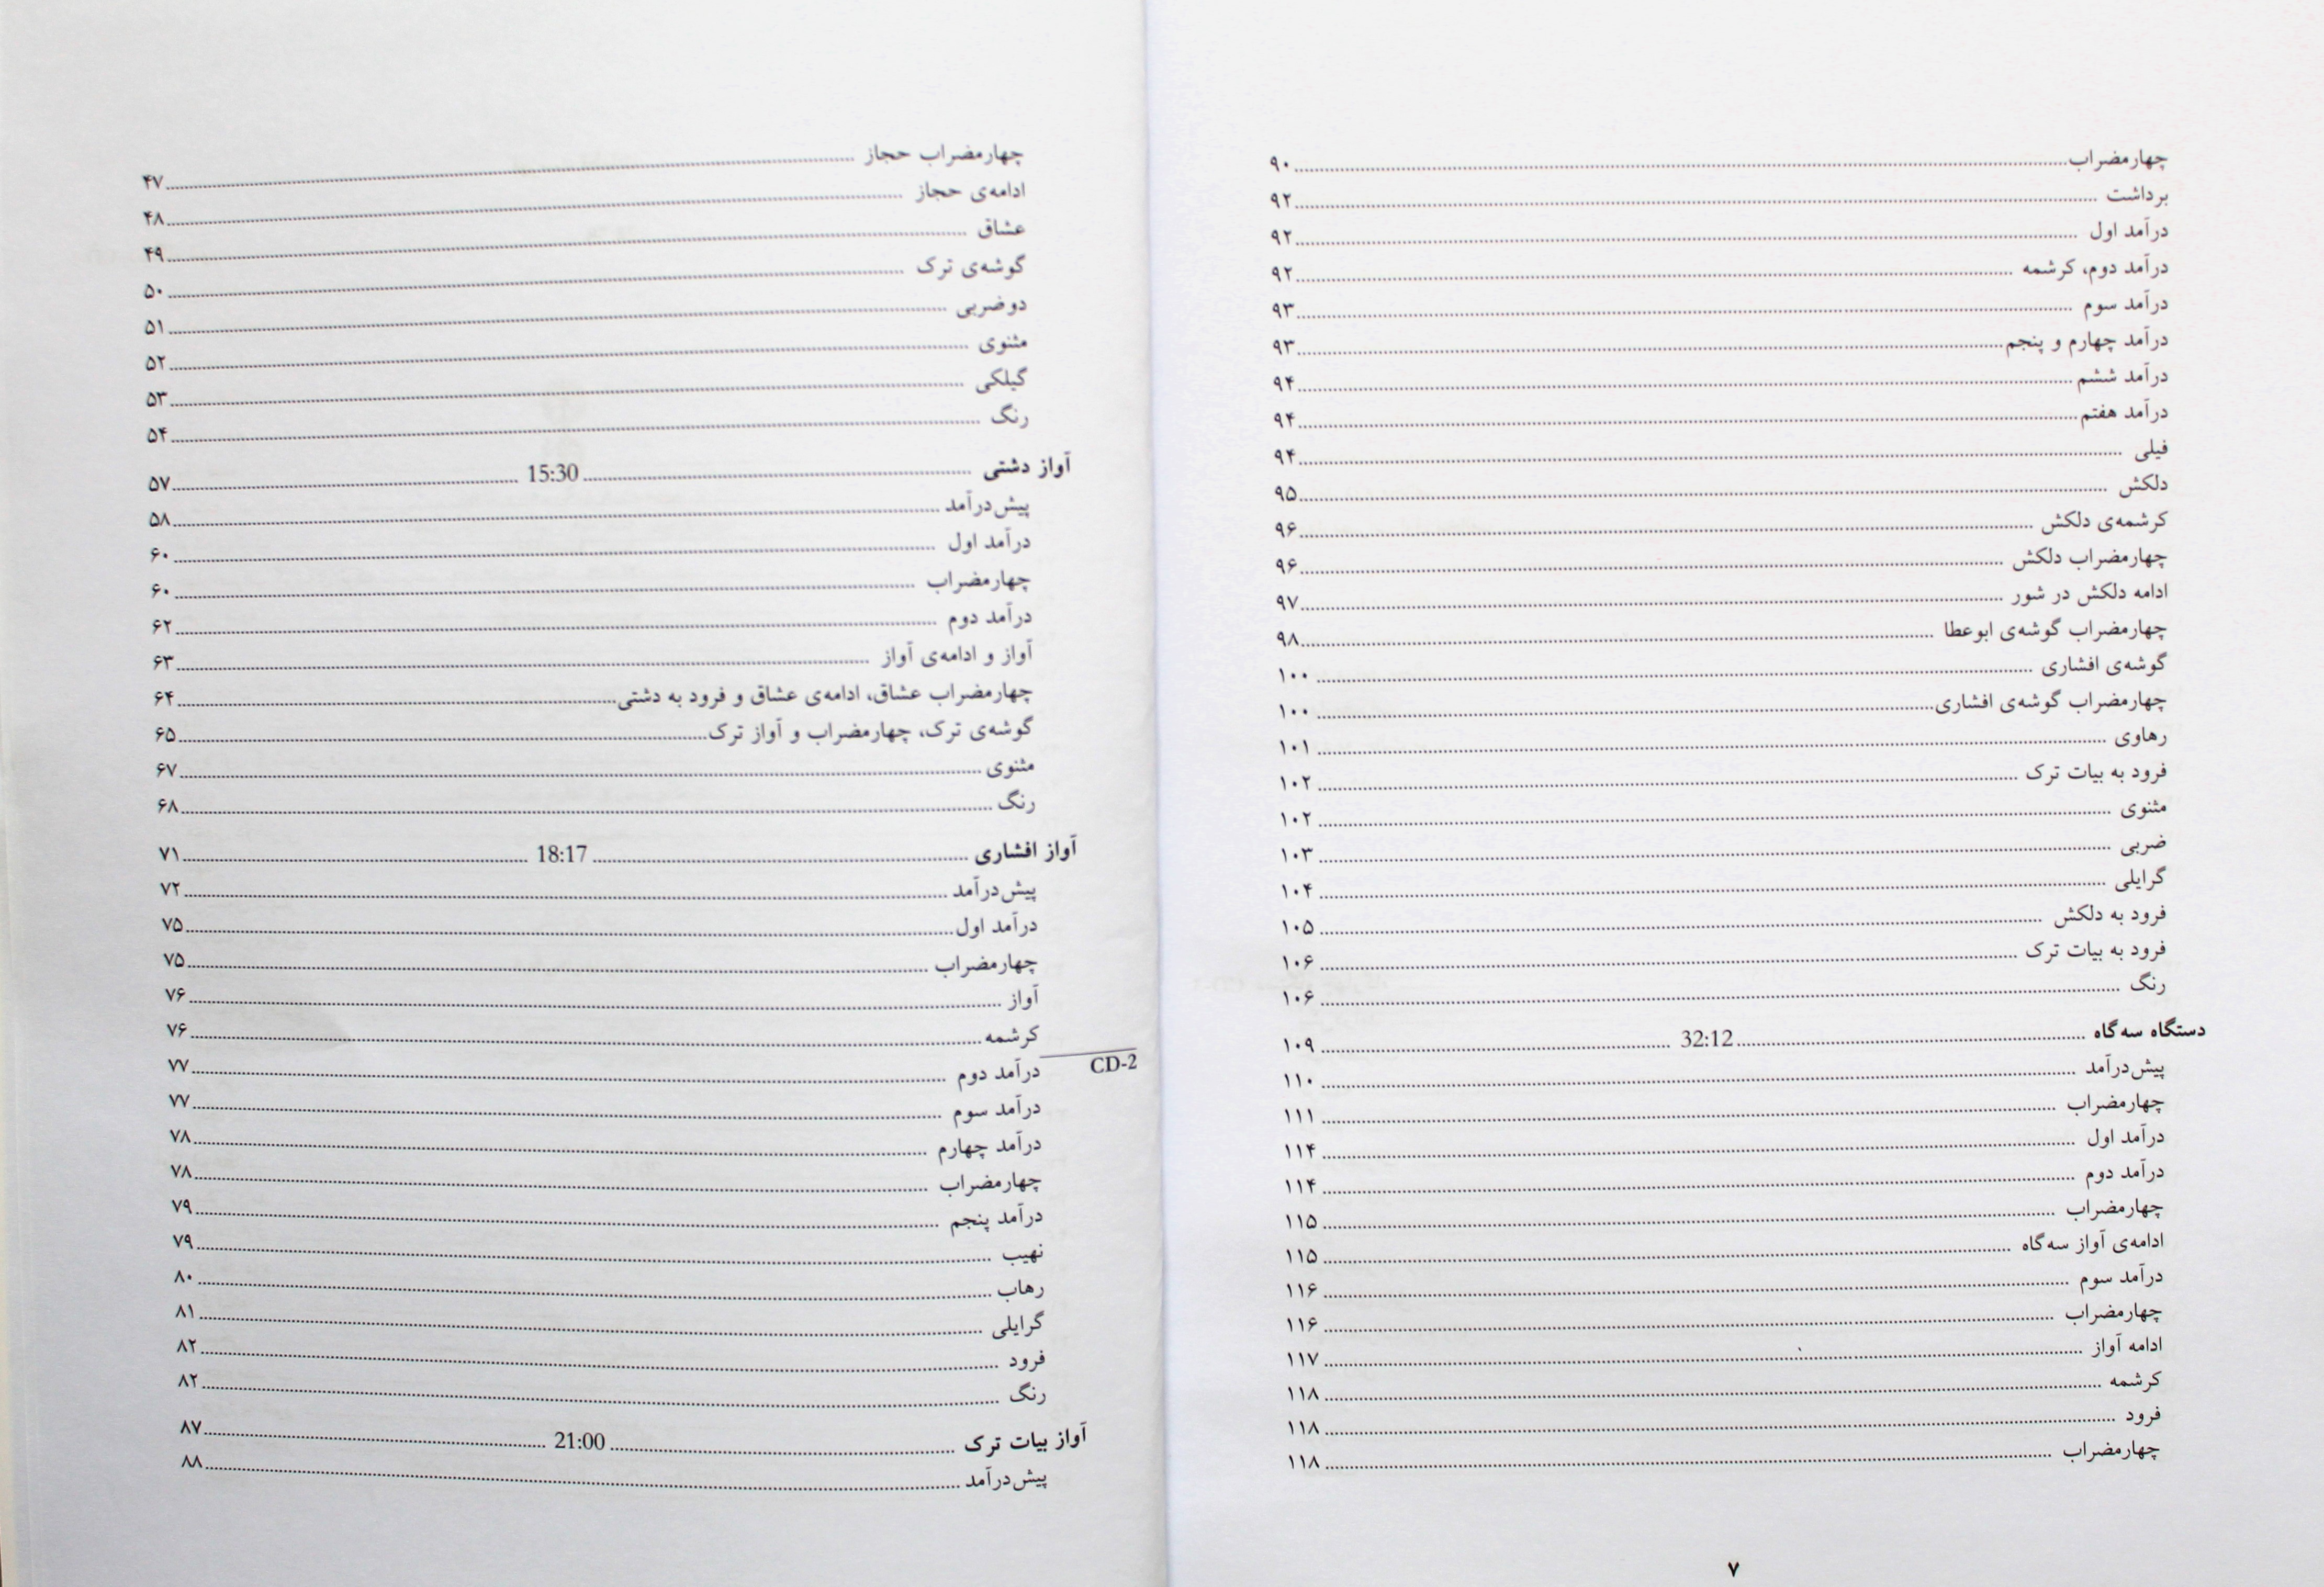 چهارمضراب حجاز ........ ۴۷
ادامه‌ی حجاز ........ ۴۸
عشاق ........ ۴۹
گوشه‌ی ترک ........ ۵۰
دوضربی ........ ۵۱
مثنوی ........ ۵۲
گیلکی ........ ۵۳
رنگ ........ ۵۴
آواز دشتی ........ 15:30 ........ ۵۷
پیش‌درآمد ........ ۵۸
درآمد اول ........ ۶۰
چهارمضراب ........ ۶۰
درآمد دوم ........ ۶۲
آواز و ادامه‌ی آواز ........ ۶۳
چهارمضراب عشاق، ادامه‌ی عشاق و فرود به دشتی ........ ۶۴
گوشه‌ی ترک، چهارمضراب و آواز ترک ........ ۶۵
مثنوی ........ ۶۷
رنگ ........ ۶۸
آواز افشاری ........ 18:17 ........ ۷۱
پیش‌درآمد ........ ۷۲
درآمد اول ........ ۷۵
چهارمضراب ........ ۷۵
آواز ........ ۷۶
کرشمه ........ ۷۶
CD-2
درآمد دوم ........ ۷۷
درآمد سوم ........ ۷۷
درآمد چهارم ........ ۷۸
چهارمضراب ........ ۷۸
درآمد پنجم ........ ۷۹
نهیب ........ ۷۹
رهاب ........ ۸۰
گرایلی ........ ۸۱
فرود ........ ۸۲
رنگ ........ ۸۲
آواز بیات ترک ........ 21:00 ........ ۸۷
پیش‌درآمد ........ ۸۸
چهارمضراب ........ ۹۰
برداشت ........ ۹۲
درآمد اول ........ ۹۲
درآمد دوم، کرشمه ........ ۹۲
درآمد سوم ........ ۹۳
درآمد چهارم و پنجم ........ ۹۳
درآمد ششم ........ ۹۴
درآمد هفتم ........ ۹۴
فیلی ........ ۹۴
دلکش ........ ۹۵
کرشمه‌ی دلکش ........ ۹۶
چهارمضراب دلکش ........ ۹۶
ادامه دلکش در شور ........ ۹۷
چهارمضراب گوشه‌ی ابوعطا ........ ۹۸
گوشه‌ی افشاری ........ ۱۰۰
چهارمضراب گوشه‌ی افشاری ........ ۱۰۰
رهاوی ........ ۱۰۱
فرود به بیات ترک ........ ۱۰۲
مثنوی ........ ۱۰۲
ضربی ........ ۱۰۳
گرایلی ........ ۱۰۴
فرود به دلکش ........ ۱۰۵
فرود به بیات ترک ........ ۱۰۶
رنگ ........ ۱۰۶
دستگاه سه‌گاه ........ 32:12 ........ ۱۰۹
پیش‌درآمد ........ ۱۱۰
چهارمضراب ........ ۱۱۱
درآمد اول ........ ۱۱۴
درآمد دوم ........ ۱۱۴
چهارمضراب ........ ۱۱۵
ادامه‌ی آواز سه‌گاه ........ ۱۱۵
درآمد سوم ........ ۱۱۶
چهارمضراب ........ ۱۱۶
ادامه آواز ........ ۱۱۷
کرشمه ........ ۱۱۸
فرود ........ ۱۱۸
چهارمضراب ........ ۱۱۸
۷